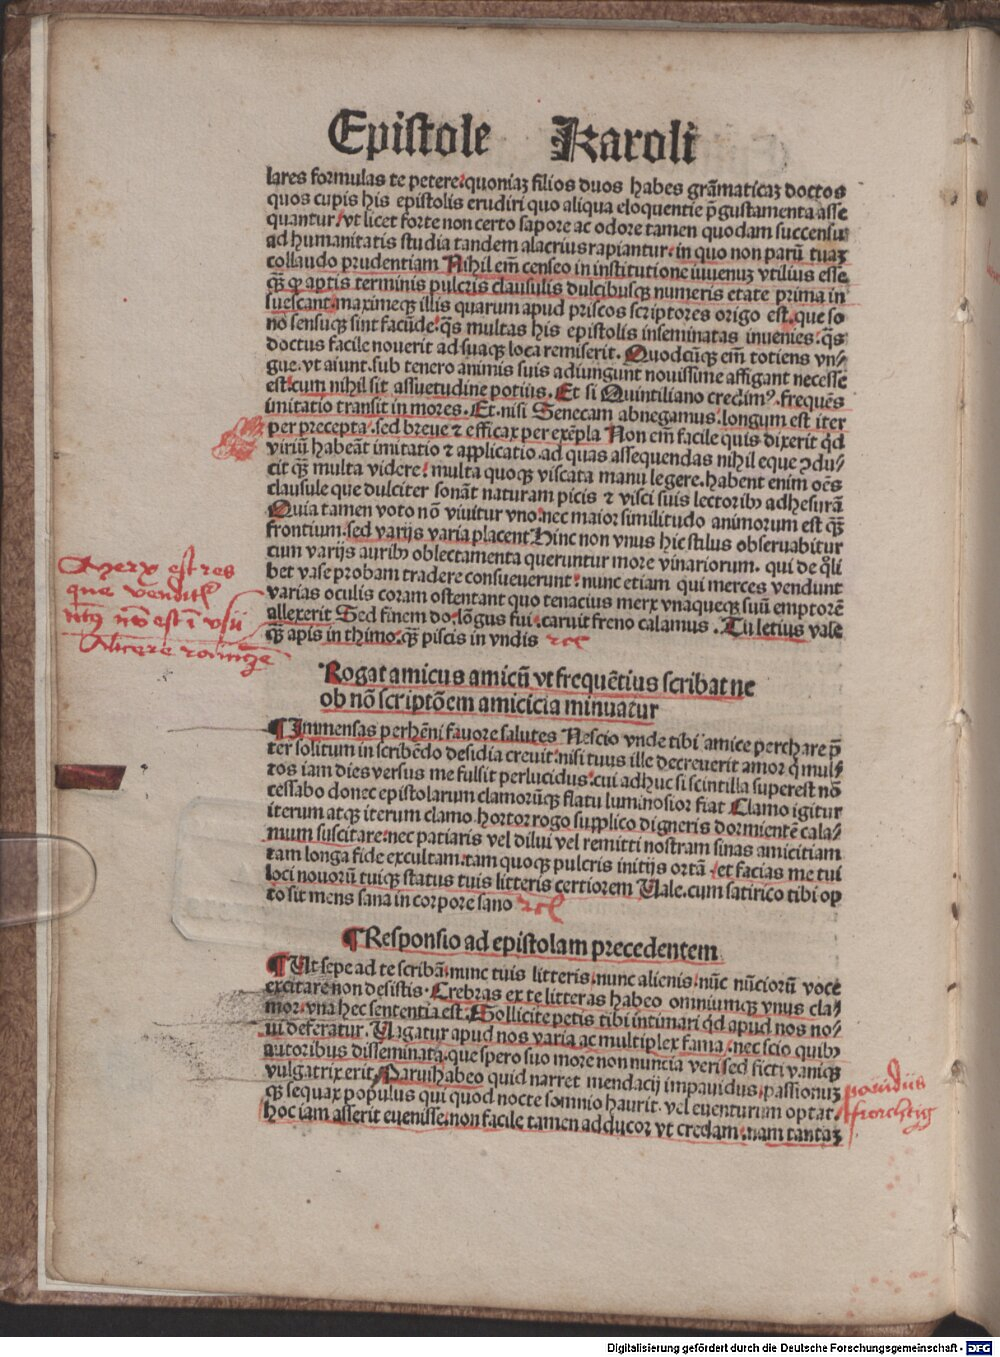 Epistole Karoli
lares formulas te petere. quoniaʒ filios duos habes grãmaticaʒ doctos
quos cupis his epistolis erudiri quo aliqua eloquentie p̃gustamenta asse
quantur / vt licet forte non certo sapore ac odore tamen quodam succensu
ad humanitatis studia tandem alacrius rapiantur. in quo non parũ tuaʒ
collaudo prudentiam Nihil em̃ censeo in institutione iuuenuʒ vtilius esse
qȝ̃ ꝙ aptis terminis pulcris clausulis dulcibusqȝ numeris etate prima in
suescant. maximeqȝ illis quarum apud priscos scriptores origo est. que so
no sensuqȝ sint facũde. qȝ̃s multas his epistolis inseminatas inuenies. qȝ̃s
doctus facile nouerit ad suaqȝ loca remiserit. Quodcũqȝ em̃ totiens vn⸗
gue. vt aiunt. sub tenero animis suis adiungunt nouissime affigant necesse
est. cum nihil sit assuetudine potius. Et si Quintiliano credimꝰ. frequẽs
imitatio transit in mores. Et. nisi Senecam abnegamus. longum est iter
per precepta. sed breue ⁊ efficax per exẽpla Non em̃ facile quis dixerit qd̃
viriũ habeãt imitatio ⁊ applicatio. ad quas assequendas nihil eque ꝯdu⸗
cit qȝ̃ multa videre. multa quoqȝ viscata manu legere. habent enim oẽs
clausule que dulciter sonãt naturam picis ⁊ visci suis lectoribꝰ adhesurã
Quia tamen voto nõ viuitur vno. nec maior similitudo animorum est qȝ̃
frontium. sed varijs varia placent Hinc non vnus hic stilus obseruabitur
cum varijs auribꝰ oblectamenta queruntur more vinariorum. qui de q̃li
bet vase probam tradere consueuerunt. nunc etiam qui merces vendunt
varias oculis coram ostentant quo tenacius merx vnaqueqȝ suũ emptorẽ
allexerit Sed finem do. lõgus fui. caruit freno calamus. Tu letius vale
qȝ̃ apis in thimo. qȝ̃ piscis in vndis rc̃
Merx est res
que vendit᷑
est ĩ vsu
Alicere
Rogat amicus amicũ vt frequẽtius scribat ne
ob nõ scriptõem amicicia minuatur
¶ Immensas perhẽni fauore salutes Nescio vnde tibi amice perchare p̃
ter solitum in scribẽdo desidia creuit. nisi tuus ille decreuerit amor q̃ mul⸗
tos iam dies versus me fulsit perlucidus. cui adhuc si scintilla superest nõ
cessabo donec epistolarum clamorũqȝ flatu luminosior fiat Clamo igitur
iterum atqȝ iterum clamo. hortor rogo supplico digneris dormientẽ cala⸗
mum suscitare. nec patiaris vel dilui vel remitti nostram sinas amicitiam
tam longa fide excultam. tam quoqȝ pulcris initijs ortã. et facias me tui
loci nouorũ tuiqȝ status tuis litteris certiorem Vale. cum satirico tibi op
to sit mens sana in corpore sano rc̃
¶ Responsio ad epistolam precedentem
¶ Ut sepe ad te scribã. nunc tuis litteris. nunc alienis. nũc nũciorũ voce
excitare non desistis. Crebras ex te litteras habeo omniumqȝ vnus cla⸗
mor. vna hec sententia est. Sollicite petis tibi intimari qd̃ apud nos no⸗
ui deferatur. Vagatur apud nos varia ac multiplex fama. nec scio quibꝰ
autoribus disseminata. que spero suo more non nuncia veri sed ficti vaniqȝ
vulgatrix erit. Paruihabeo quid narret mendacij impauidus. passionuʒ
qȝ sequax populus qui quod nocte somnio haurit. vel euenturum optat
hoc iam asserit euenisse. non facile tamen adducor vt credam. nam tantaʒ
pauidus
forchtig
Digitalisierung gefördert durch die Deutsche Forschungsgemeinschaft - DFG